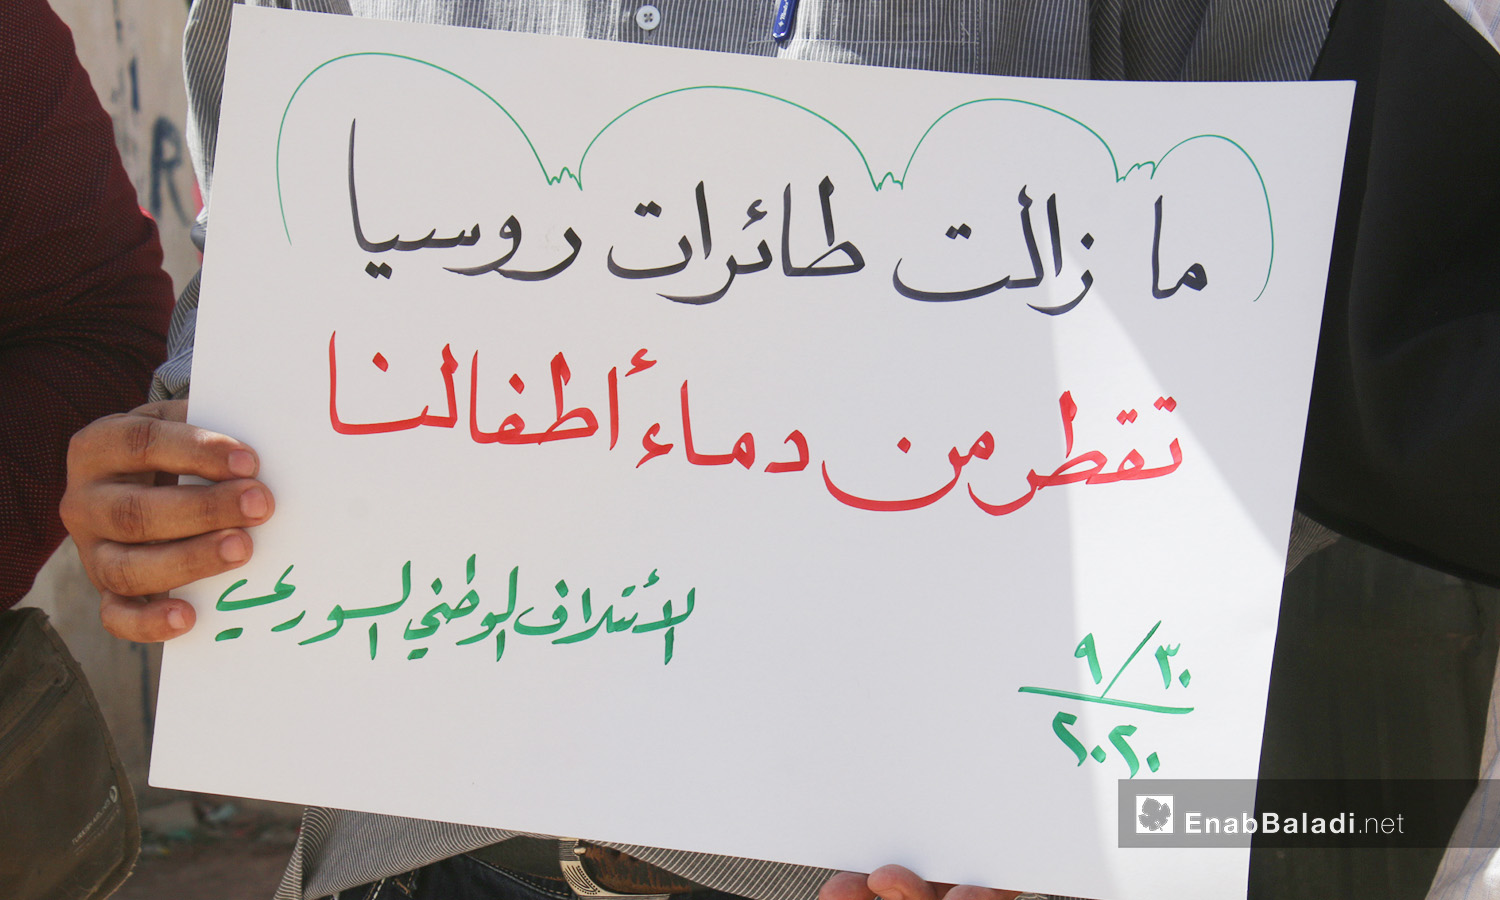 ما زالت طائرات روسيا
تقطر من دماء أطفالنا
الأئتلاف الوطني السوري
٩/٣٠
٢٠٢٠
EnabBaladi.net